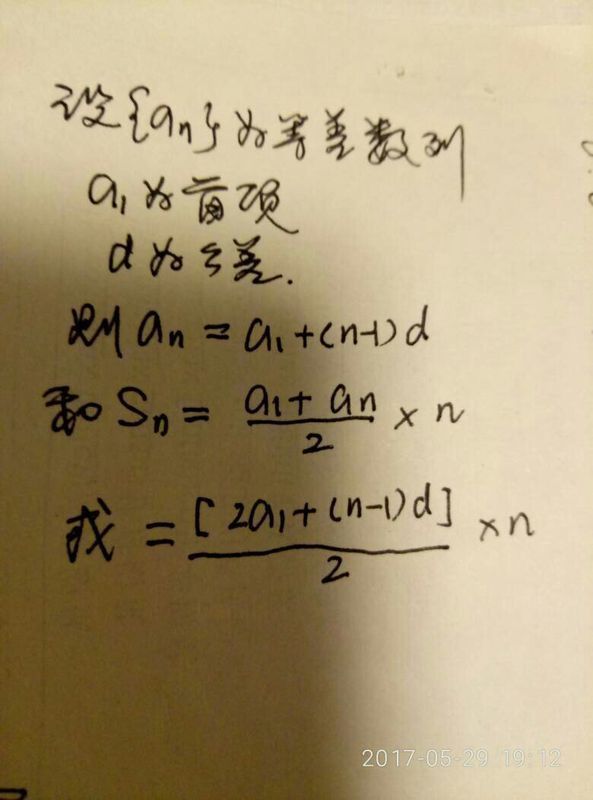 设{an}为等差数列
a₁为首项
d为公差.
则an=a₁+(n-1)d
和Sn=(a₁+an)/2×n
或=[2a₁+(n-1)d]/2×n
2017-05-29 19:12